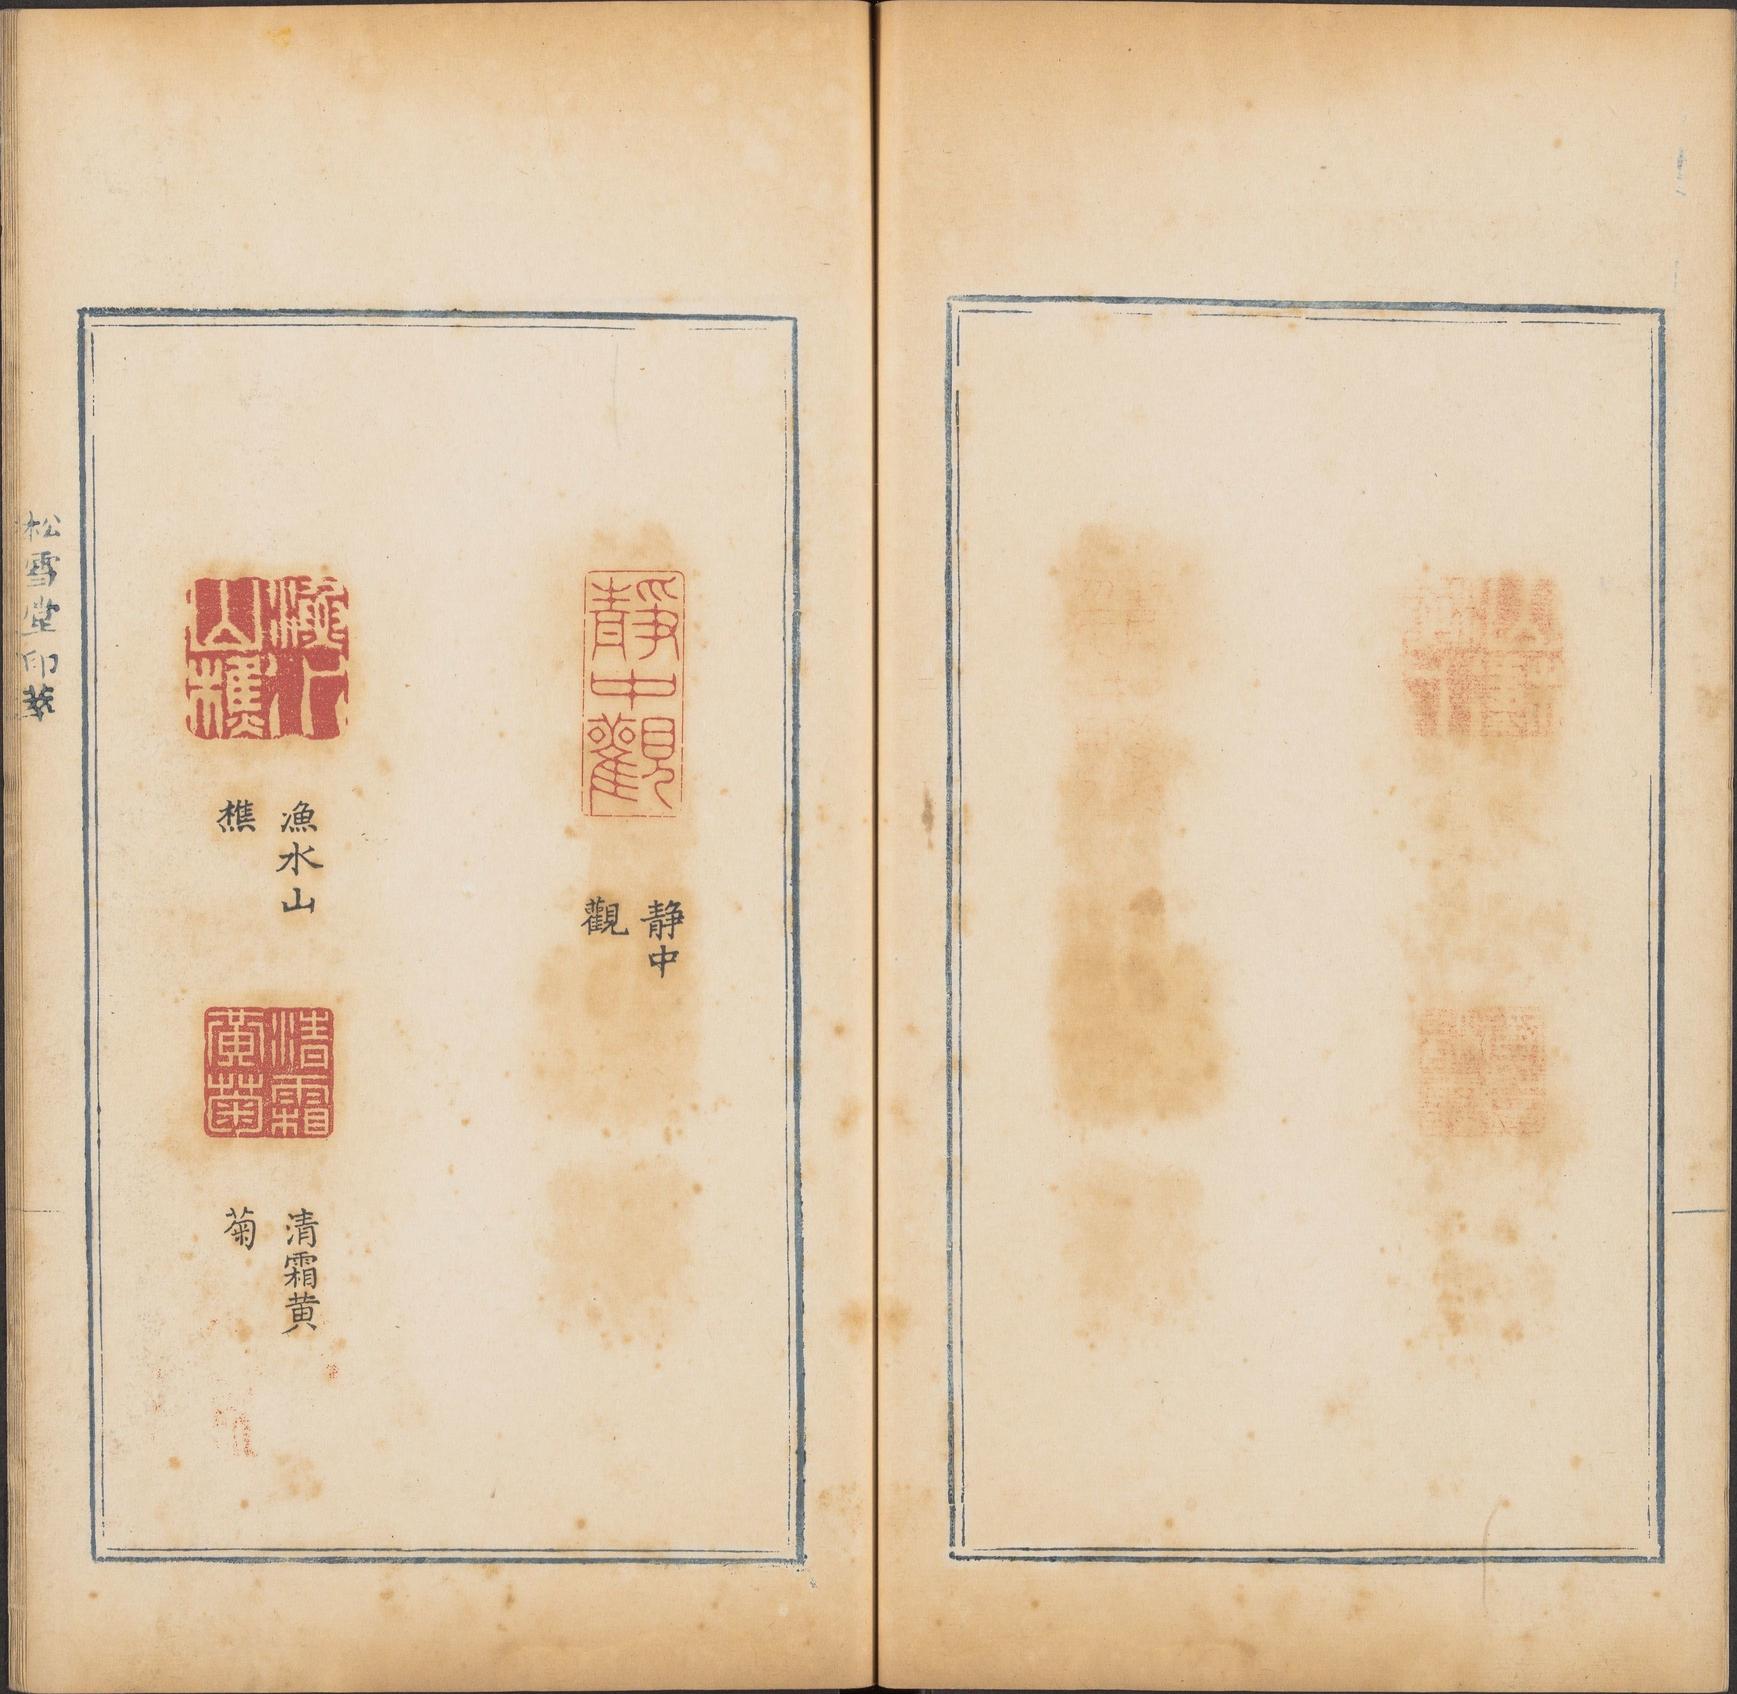 靜中觀
静中
觀
山樵
漁水山
樵
清霜
黃菊
清霜黄
菊
松雪堂印萃